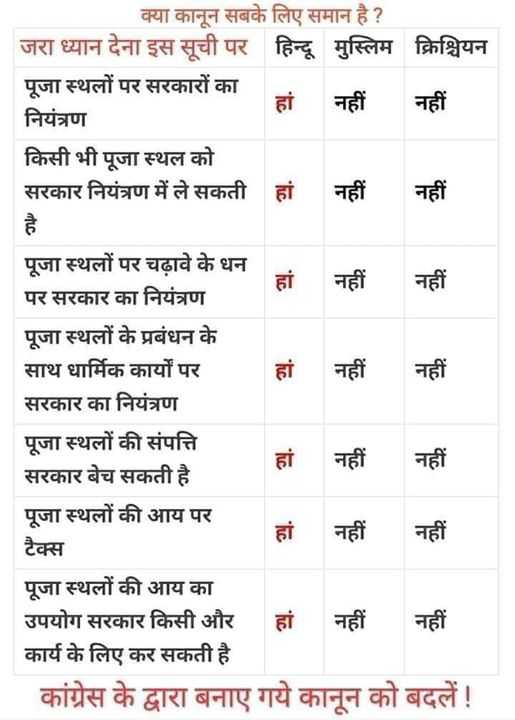 क्या कानून सबके लिए समान है ?
जरा ध्यान देना इस सूची पर हिन्दू मुस्लिम क्रिश्चियन
पूजा स्थलों पर सरकारों का
नियंत्रण
हां नहीं नहीं
किसी भी पूजा स्थल को
सरकार नियंत्रण में ले सकती हां नहीं नहीं
है
पूजा स्थलों पर चढ़ावे के धन
पर सरकार का नियंत्रण
हां नहीं नहीं
पूजा स्थलों के प्रबंधन के
साथ धार्मिक कार्यों पर हां नहीं नहीं
सरकार का नियंत्रण
पूजा स्थलों की संपत्ति
सरकार बेच सकती है
हां नहीं नहीं
पूजा स्थलों की आय पर
टैक्स
हां नहीं नहीं
पूजा स्थलों की आय का
उपयोग सरकार किसी और हां नहीं नहीं
कार्य के लिए कर सकती है
कांग्रेस के द्वारा बनाए गये कानून को बदलें !